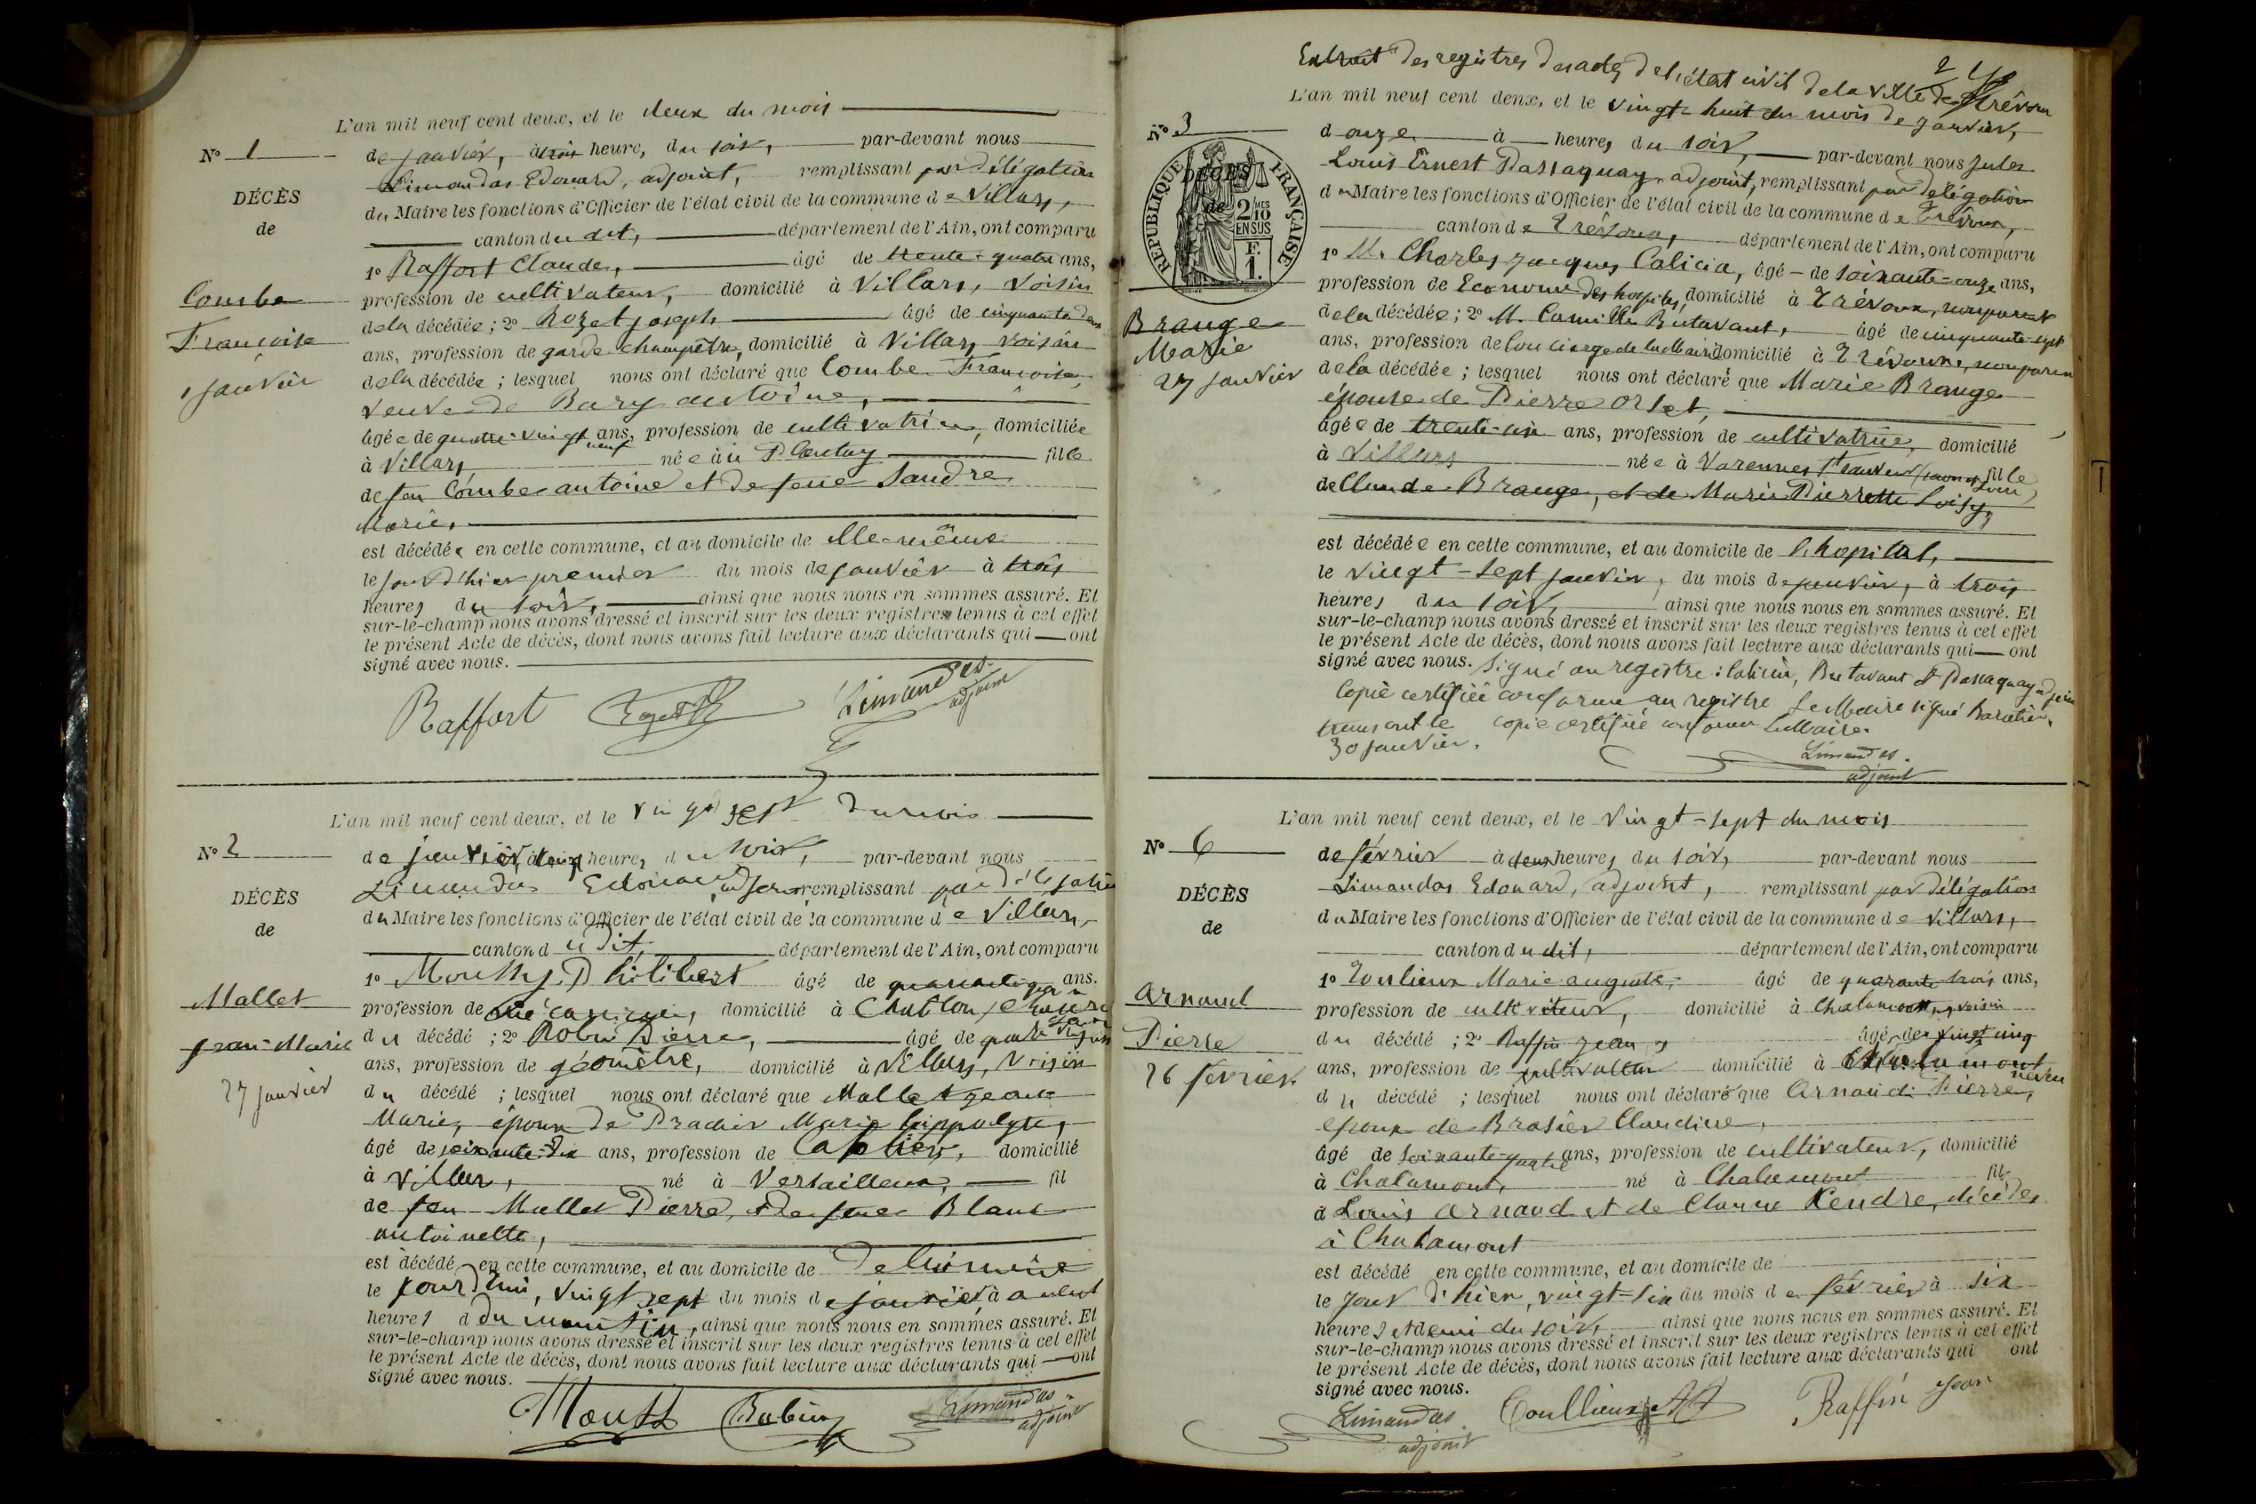 L'an mil neuf cent deux, et le deux du mois
N° 1
de janvier, à trois heure, du soir, par-devant nous
Limandas Edouard, adjoint, remplissant par délégation
DÉCÈS
du Maire les fonctions d'Officier de l'état civil de la commune de Villars,
de
canton du dit, département de l'Ain, ont comparu
1° Raffort Claude, âgé de trente-quatre ans,
Combe
profession de cultivateur, domicilié à Villars, voisin
de la décédée; 2° Rozet joseph âgé de cinquante deux
Françoise
ans, profession de garde champêtre, domicilié à Villars voisin
1 janvier
de la décédée; lesquel nous ont déclaré que Combe Françoise,
veuve de Bary antoine,
âgée de quatre-vingt neuf ans, profession de cultivatrice, domiciliée
à Villars née au Plantay fille
de feu Combe antoine et de feue Sandre
Marie,
est décédée en cette commune, et au domicile de elle-même
le jour d'hier premier du mois de janvier à trois
heures du soir, ainsi que nous nous en sommes assuré. Et
sur-le-champ nous avons dressé et inscrit sur les deux registres tenus à cet effet
le présent Acte de décès, dont nous avons fait lecture aux déclarants qui ont
signé avec nous.
Raffort Rozet Limandas
adjoint
L'an mil neuf cent deux, et le vingt sept du mois
N° 2
de janvier, à heure, du soir, par-devant nous
Limandas Edouard adjoint remplissant par délégation
DÉCÈS
du Maire les fonctions d'Officier de l'état civil de la commune de Villars,
de
canton du dit, département de l'Ain, ont comparu
1° Philibert âgé de ans.
Mallet
profession de mécanicien, domicilié à Chatillon
du décédé; 2° Robin Pierre, âgé de
jean-Marie
ans, profession de géomètre, domicilié à Villars, voisin
27 janvier
du décédé; lesquel nous ont déclaré que Mallet jean
Marie, époux de Marie hippolyte,
âgé de soixante-dix ans, profession de domicilié
à Villars, né à Versailleux, fil
de feu Mallet Pierre, et de feue Blanc
antoinette,
est décédé en cette commune, et au domicile de de lui même
le jourd'hui, vingt sept du mois de janvier à
heures d du matin, ainsi que nous nous en sommes assuré. Et
sur-le-champ nous avons dressé et inscrit sur les deux registres tenus à cet effet
le présent Acte de décès, dont nous avons fait lecture aux déclarants qui ont
signé avec nous.
Robin Limandas
adjoint
Extrait des registres des actes de l'état civil de la ville de Trévoux
L'an mil neuf cent deux, et le vingt-huit du mois de janvier,
N° 3
d onze à heures du soir, par-devant nous Jules
Louis Ernest Passaquay adjoint, remplissant par délégation
RÉPUBLIQUE FRANÇAISE
DÉCÈS
de
2/10 EN SUS
F. 1.
du Maire les fonctions d'Officier de l'état civil de la commune de Trévoux,
canton de Trévoux, département de l'Ain, ont comparu
1° M. Charles Jacques Calicia, âgé de soixante-onze ans,
profession de Econome des hospices domicilié à Trévoux, non parent
de la décédée; 2° M. Camille Butavant, âgé de cinquante-sept
Brange
Marie
27 janvier
ans, profession de Concierge de la Mairie domicilié à Trévoux, non parent
de la décédée; lesquel nous ont déclaré que Marie Brange
épouse de Pierre Orset,
âgée de trente-six ans, profession de cultivatrice, domicilié
à Villars née à Varennes (Saône et Loire) fille
de Claude Brange, et de Marie Pierrette Loisy,
est décédée en cette commune, et au domicile de l'hopital,
le vingt-sept janvier, du mois de janvier, à trois
heures du soir, ainsi que nous nous en sommes assuré. Et
sur-le-champ nous avons dressé et inscrit sur les deux registres tenus à cet effet
le présent Acte de décès, dont nous avons fait lecture aux déclarants qui ont
signé avec nous. Signé au registre: Calicia, Butavant & Passaquay adjoint
Copie certifiée conforme au registre Le Maire signé
transcrit le copie certifiée conforme Le Maire.
30 janvier. Limandas.
adjoint
L'an mil neuf cent deux, et le vingt-sept du mois
N° 6
de février à deux heures du soir, par-devant nous
Limandas Edouard, adjoint, remplissant par délégation
DÉCÈS
du Maire les fonctions d'Officier de l'état civil de la commune de Villars,
de
canton du dit, département de l'Ain, ont comparu
1° Marie auguste, âgé de quarante trois ans,
Arnaud
profession de cultivateur, domicilié à Chalamont, voisin
Pierre
du décédé; 2° Raffin Jean, âgé de vingt cinq
26 février
ans, profession de cultivateur domicilié à Chalamont neveu
du décédé; lesquel nous ont déclaré que Arnaud Pierre,
époux de Brasier Claudine,
âgé de soixante-quatre ans, profession de cultivateur, domicilié
à Chalamont, né à Chalamont fils
à Louis Arnaud et de Clarme Rendre, décédés
à Chalamont
est décédé en cette commune, et au domicile de
le jour d'hier, vingt-six du mois de février à six
heures et demi du soir, ainsi que nous nous en sommes assuré. Et
sur-le-champ nous avons dressé et inscrit sur les deux registres tenus à cet effet
le présent Acte de décès, dont nous avons fait lecture aux déclarants qui ont
signé avec nous.
Limandas Raffin Jean
adjoint